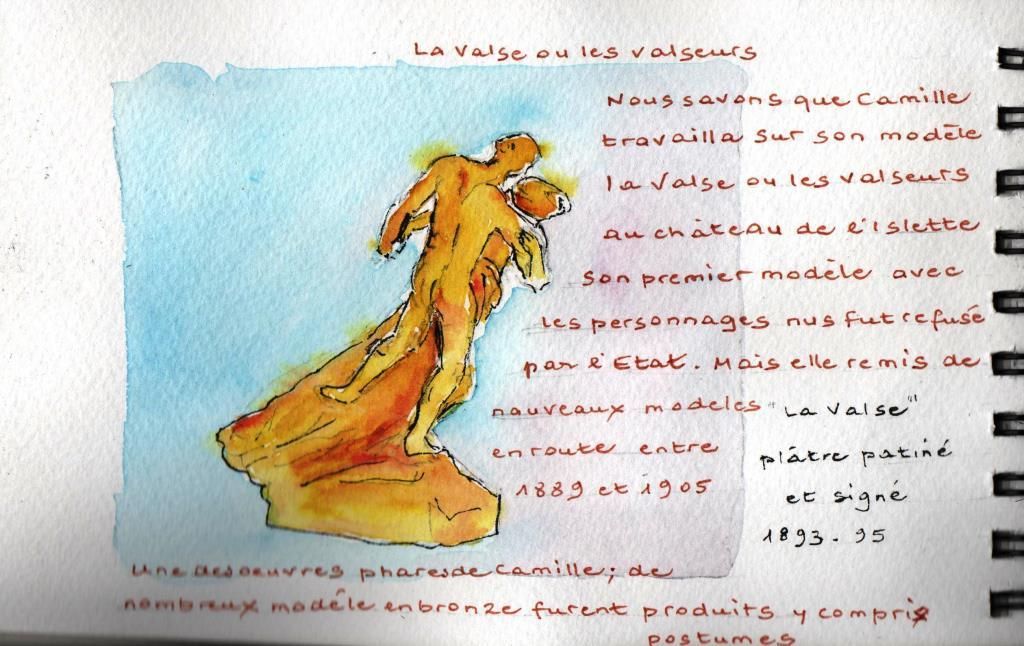 La valse ou les valseurs
Nous savons que Camille
travailla sur son modèle
la Valse ou les valseurs
au château de l'Islette
son premier modèle avec
les personnages nus fut refusé
par l'Etat. Mais elle remis de
nouveaux modeles
en route entre
1889 et 1905
"La Valse"
plâtre patiné
et signé
1893-95
Une des oeuvres phares de Camille; de
nombreux modéle en bronze furent produits y compris
postumes